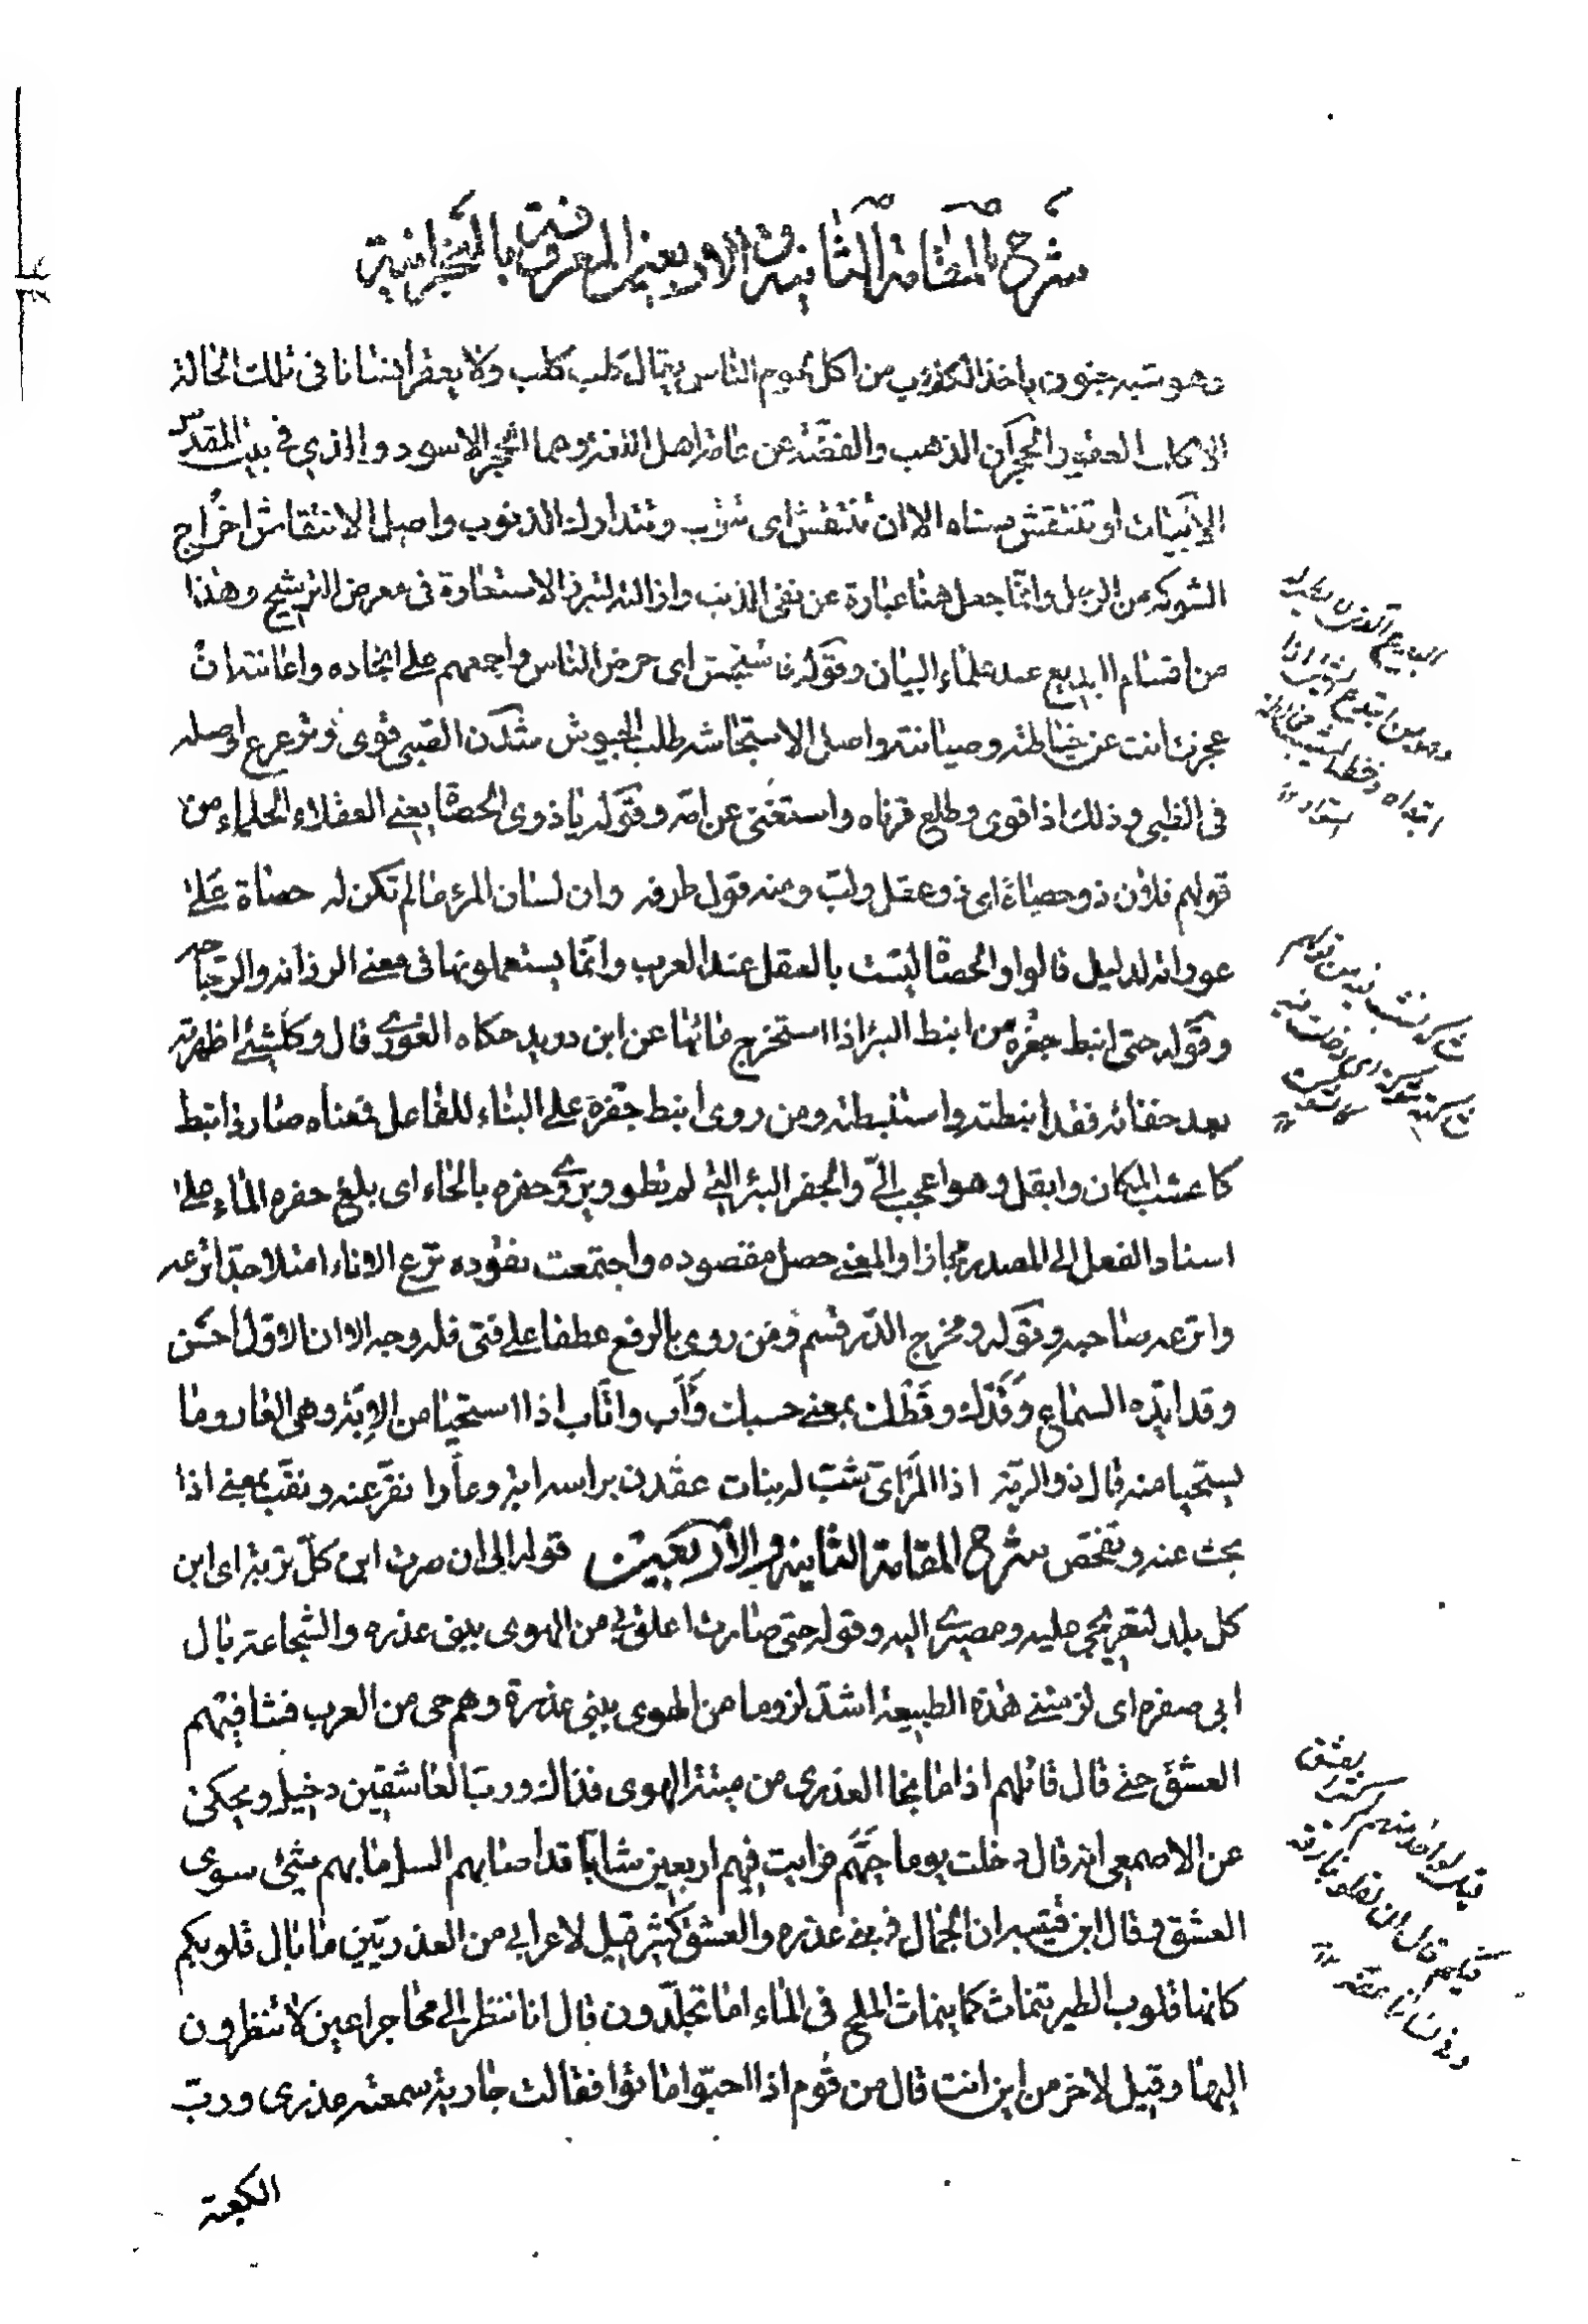 شرح المقامة الثانية والاربعين المعروفة بالنجرانية
وهو شبه جنون ياخذ الكلاب من اكل لحوم الناس يقال كلب كلب ولا يعقر انسانا فى تلك الحالة
الا كلب العقور والحجران الذهب والفضة عن عامة اهل اللغة وهما الحجر الاسود والذي في بيت المقدس
الابيات او تنتقش معناه الا ان تنتقش اى تتوب وتتدارك الذنوب واصل الانتقاش اخراج
الشوكة من الرجل وانما جعل هنا عبارة عن نفى الذنب وازالته لتبرز الاستعارة فى معرض الترشيح وهذا
من اقسام البديع عند علماء البيان وقوله فاستجش اى حرض الناس واجمعهم على انجاده واغاثته ان
عجزت انت عن حياطته وصيانته واصل الاستجاشة طلب الجيوش شدن الصبى قوى وترعرع اصله
فى الظبى وذلك اذا قوى وطلع قرناه واستغنى عن امه وقوله يا ذوى الحصاة يعنى العقلاء الحلماء من
قولهم فلان ذو حصاة اى ذو عقل ولب ومنه قول طرفه وان لسان المرء ما لم تكن له حصاة على
عوراته لدليل قالوا والحصاة ليست بالعقل عند العرب وانما يستعملونها فى معنى الرزانة والرجاحه
وقوله حتى انبط جفره من انبط البئر اذا استخرج مائها عن ابن دريد حكاه الغورى قال وكل شئ اظهرته
بعد خفائه فقد انبطته واستنبطته ومن روى انبط جفره على البناء للفاعل فمعناه صار ذا نبط
كاعشب المكان وابقل وهو اعجب الىّ والجفر البئر التى لم تطو ويروى حفره بالحاء اى بلغ حفره الماء على
اسناد الفعل الى المصدر مجازا والمعنى حصل مقصوده واجتمعت نقوده ترع الاناء امتلا جدا ترعه
واترعه صاحبه وقوله ومخرج الدر قسم ومن روى بالرفع عطفا على فتى فله وجه الا ان الاول احسن
وقد ايده السماع وقدك وقطك بمعنى حسبك وأب واتأب اذا استحيا من الابة وهى العار وما
يستحيا منه قال ذو الرمة اذا المرئى شب له بنات عقدن براسه ابة وعارا نقر عنه ونقب بمعنى اذا
بحث عنه وتفحص شرح المقامة الثانية والاربعين قوله الى ان صرت ابن كل تربة اى ابن
كل بلد لتعريجى عليه ومصيرى اليه وقوله حتى صارت اعلق بى من الهوى ببنى عذره والشجاعة بال
ابى صفره اى لزمتنى هذه الطبيعة اشد لزوما من الهوى ببنى عذرة وهم حى من العرب فشا فيهم
العشق حتى قال قائلهم اذا ما نجا العذرى من ميتة الهوى فذاك ورب العاشقين دخيل ويحكى
عن الاصمعى انه قال دخلت يوما حيهم فرايت فيهم اربعين شابا قد اصابهم السل ما بهم شئ سوى
العشق وقال ابن قتيبه ان الجمال فى بنى عذره والعشق كثير قيل لاعرابى من العذريين ما بال قلوبكم
كانها قلوب الطير تنماث كما ينماث الملح فى الماء اما تجلدون قال انا ننظر الى محاجر اعين لا تنظرون
اليها وقيل لاخر من اين انت قال من قوم اذا احبوا ماتوا فقالت جارية سمعته عذرى ورب
الكعبة